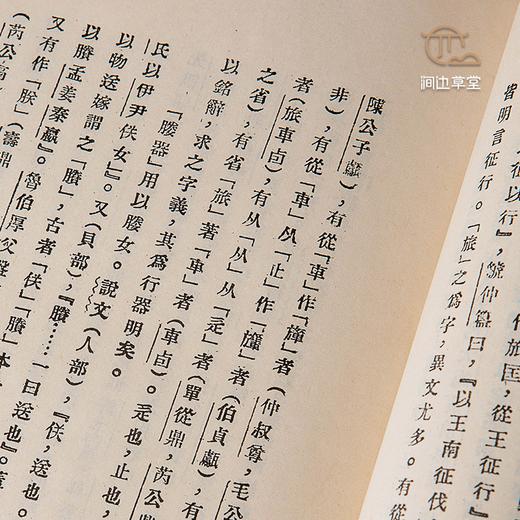 作旅匡，從王征行』
在以行』，虢仲簋曰，『以王南征伐
皆明言征行。「旅」之爲字，異文尤多。有從
陳公子甗），有從「車」作「」者（仲叔尊，毛公
非），有從「車」从「止」作「」者（伯貞甗），有
者（旅車卣），有从「从」从「辵」者（單從鼎，芮公鼎
之省），有省「旅」著「車」者（車卣）。辵也，止也，
以銘辭，求之字義，其爲行器明矣。
「媵器」用以媵女。說文（人部），『佚，送也』。
氏以伊尹佚女』。又（貝部），『賸……一曰送也』。蓋
以物送嫁謂之「賸」，古者「佚」「賸」本
以賸孟姜秦嬴』。魯伯厚父
又有作「朕」（壽鼎
芮公鬲
澗边草堂